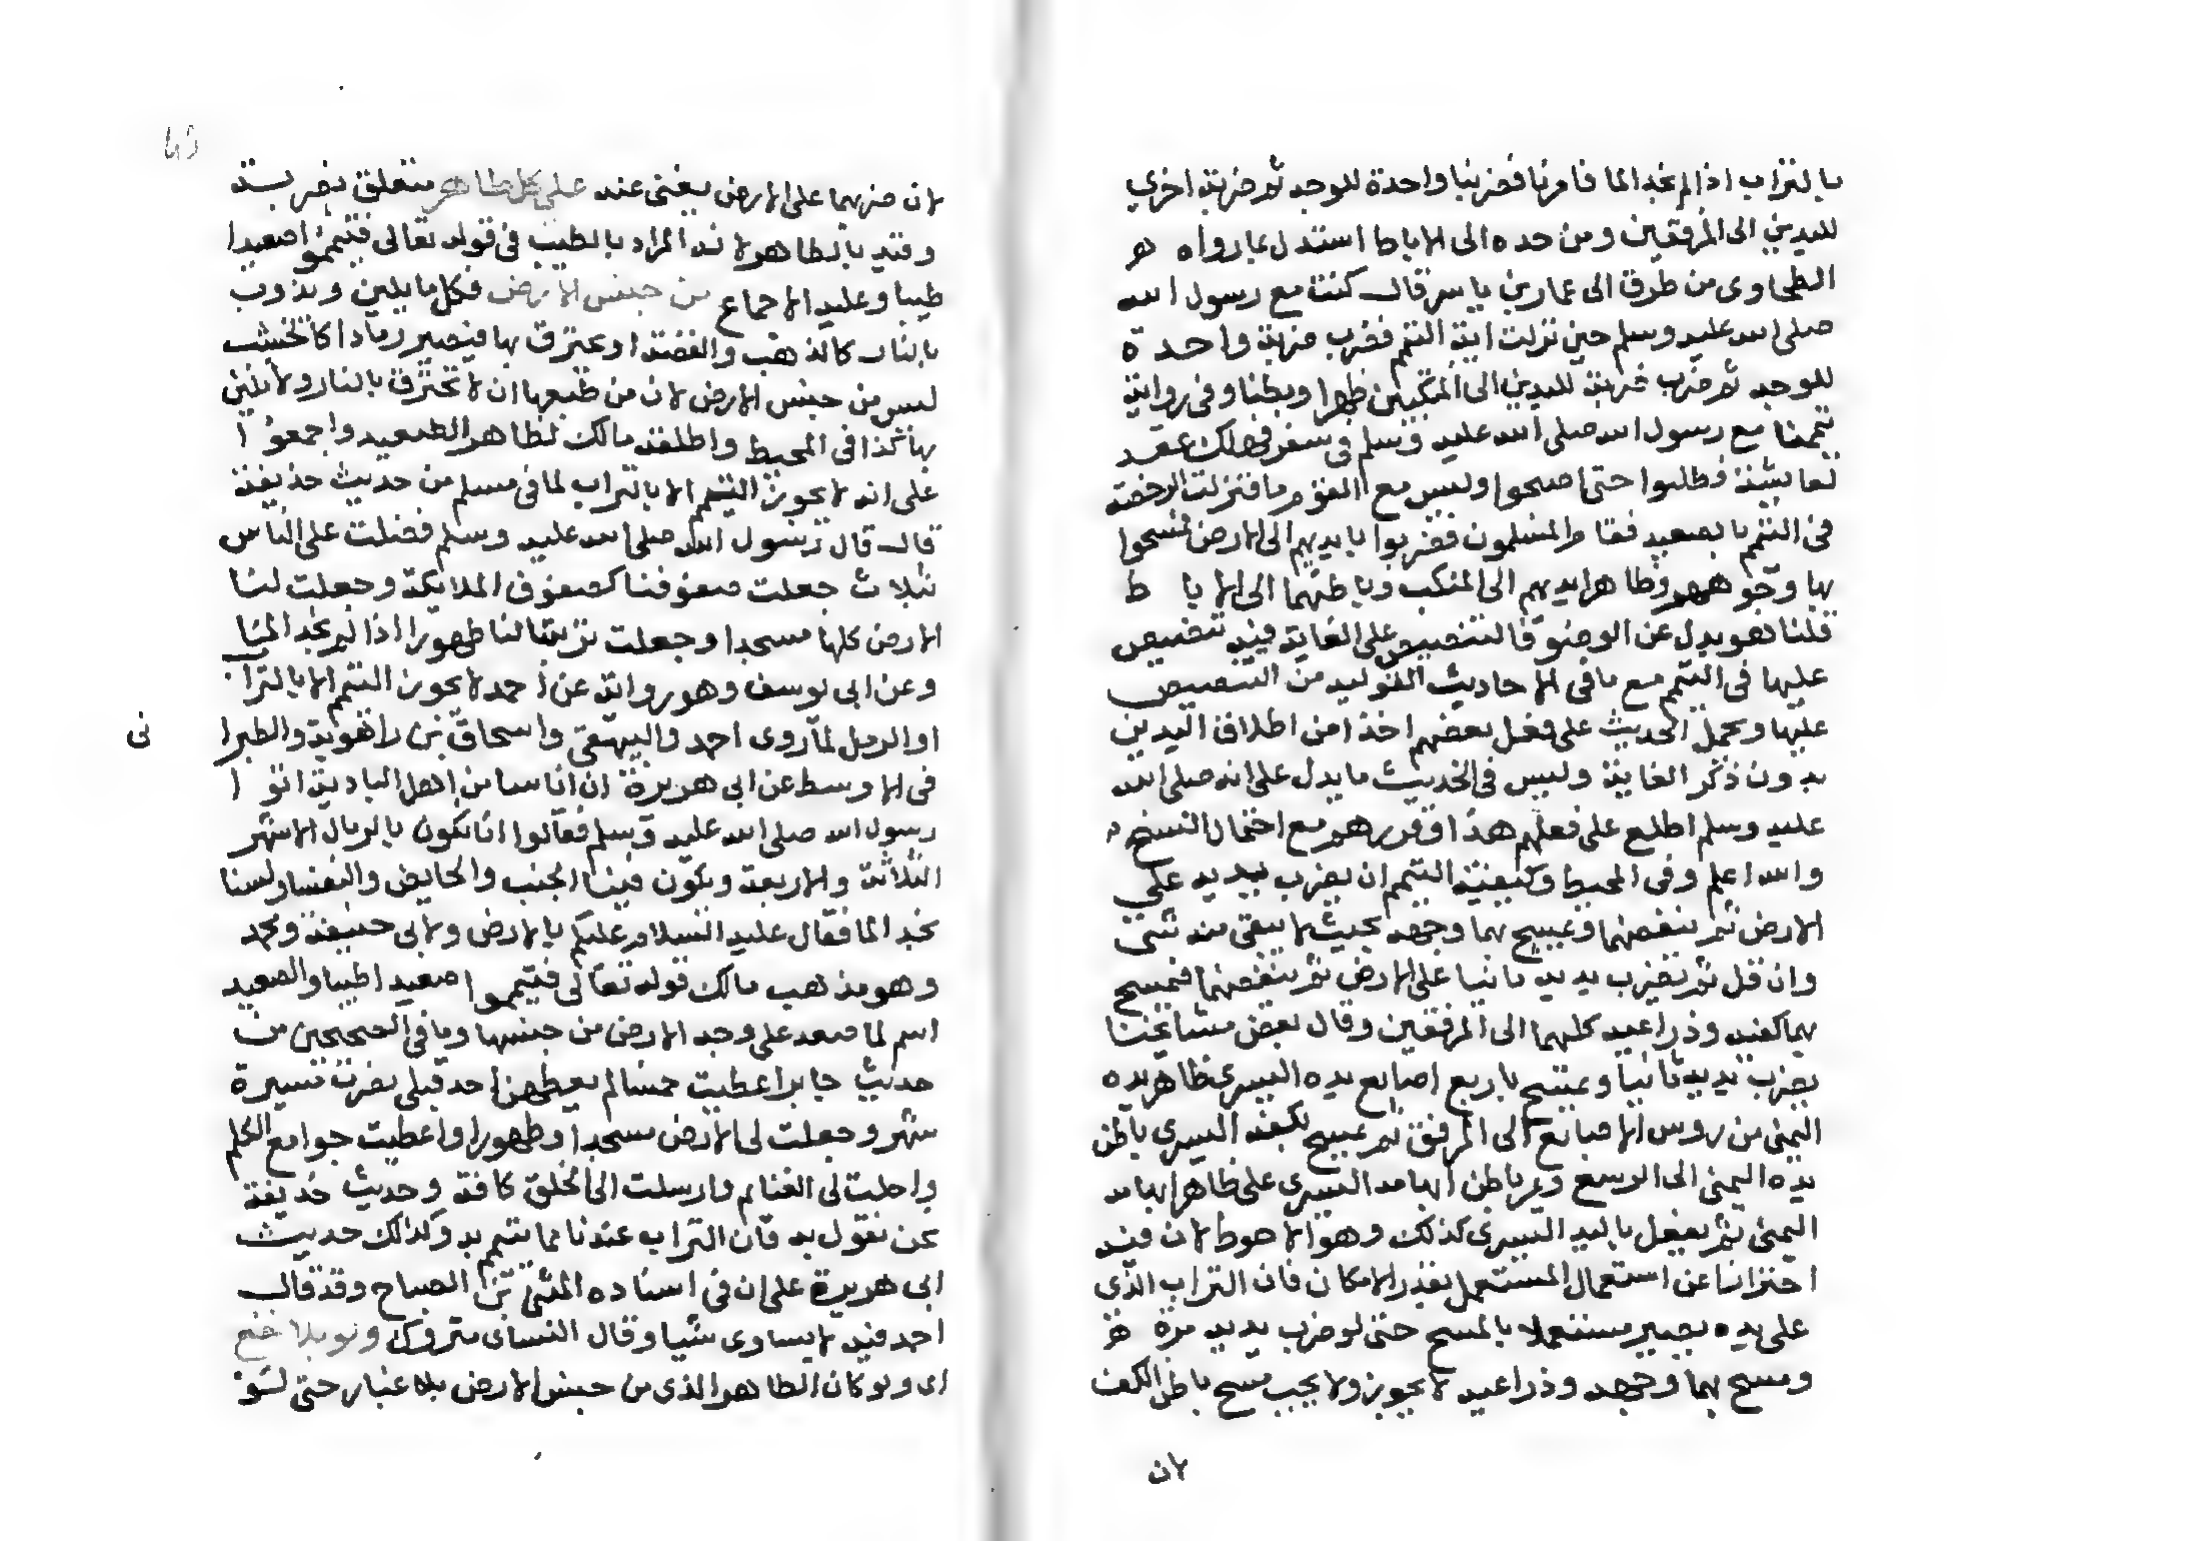 بالتراب اذا لم نجد الما فامرنا فضربنا واحدة للوجه ثم ضربة اخرى
لليدين الى المرفقين ومن حده الى الاباط استدل بما رواه
الطحاوى من طرق الى عمار بن ياسر قال كنت مع رسول الله
صلى الله عليه وسلم حين نزلت اية التيمم فضرب ضربة واحدة
للوجه ثم ضرب ضربة لليدين الى المنكبين ظهرا وبطنا وفى رواية
تيممنا مع رسول الله صلى الله عليه وسلم فى سفر فهلك عقد
لعايشة فطلبوا حتى اصبحوا وليس مع القوم ما فنزلت الرخصة
فى التيمم بالصعيد فقام المسلمون فضربوا بايديهم الى الارض فمسحوا
بها وجوههم وظاهر ايديهم الى المنكب وباطنها الى الاباط
قلنا هو بدل عن الوضو فالتنصيص على الغاية فيه تنصيص
عليها فى التيمم مع ما فى الاحاديث القولية من التنصيص
عليها ويحمل الحديث على فعل بعضهم اخذا من اطلاق اليدين
بدون ذكر الغاية وليس فى الحديث ما يدل على انه صلى الله
عليه وسلم اطلع على فعلهم هذا وقررهم مع احتمال النسخ
والله اعلم وفى المحيط وكيفية التيمم ان يضرب بيديه على
الارض ثم ينفضهما ويمسح بهما وجهه بحيث لا يبقى منه شى
وان قل ثم يضرب يديه ثانيا على الارض ثم ينفضهما فيمسح
بهما كفيه وذراعيه كليهما الى المرفقين وقال بعض مشايخنا
يضرب يديه ثانيا ويمسح باربع اصابع يده اليسرى ظاهر يده
اليمنى من روس الاصابع الى المرفق ثم يمسح بكفه اليسرى باطن
يده اليمنى الى الرسغ ويمر باطن ابهامه اليسرى على ظاهر ابهامه
اليمنى ثم يفعل باليد اليسرى كذلك وهو الاحوط لان فيه
احترازا عن استعمال المستعمل بقدر الامكان فان التراب الذى
على يده يصير مستعملا بالمسح حتى لو ضرب يديه مرة
ومسح بهما وجهه وذراعيه لا يجوز ولا يجب مسح باطن الكف
لان
لان ضربهما على الارض يغنى عنه على كل طاهر متعلق بضربته
وقيد بالطاهر لانه المراد بالطيب فى قوله تعالى فتيمموا صعيدا
طيبا وعليه الاجماع من جنس الارض فكل ما يلين ويذوب
بالنار كالذهب والفضة او يحترق بها فيصير رمادا كالخشب
ليس من جنس الارض لان من طبعها ان لا تحترق بالنار ولا تلين
بها كذا فى المحيط واطلقه مالك لظاهر الصعيد واجمعوا
على انه لا يجوز التيمم الا بالتراب لما فى مسلم من حديث حذيفة
قال قال رسول الله صلى الله عليه وسلم فضلت على الناس
بثلاث جعلت صفوفنا كصفوف الملايكة وجعلت لنا
الارض كلها مسجدا وجعلت تربتها لنا طهورا اذا لم نجد الما
وعن ابى يوسف وهو رواية عن احمد لا يجوز التيمم الا بالتراب
او الرمل لما روى احمد والبيهقى واسحاق بن راهوية والطبرا
نى
فى الاوسط عن ابى هريرة ان اناسا من اهل البادية اتوا
رسول الله صلى الله عليه وسلم فقالوا انا نكون بالرمال الاشهر
الثلاثة والاربعة ويكون فينا الجنب والحايض والنفسا ولسنا
نجد الما فقال عليه السلام عليكم بالارض ولابى حنيفة ومحمد
وهو مذهب مالك قوله تعالى فتيمموا صعيدا طيبا والصعيد
اسم لما صعد على وجه الارض من جنسها وما فى الصحيحين من
حديث جابر اعطيت خمسا لم يعطهن احد قبلى نصرت مسيرة
شهر وجعلت لى الارض مسجدا وطهورا واعطيت جوامع الكلم
واحلت لى الغنايم وارسلت الى الخلق كافة وحديث حذيفة
نحن نقول به فان التراب عندنا مما نتيمم به وكذلك حديث
ابى هريرة على ان فى اسناده المثنى بن الصباح وقد قال
احمد فيه لا يساوى شيا وقال النساى متروك ولو بلا نقع
اى ولو كان الطاهر الذى من جنس الارض بلا غبار حتى لو